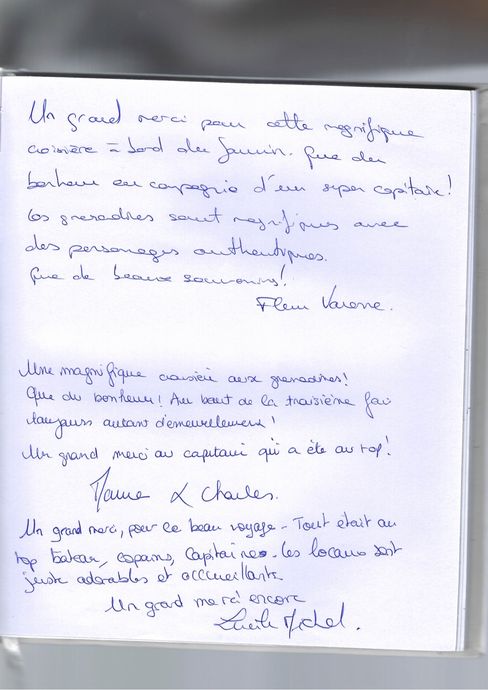 Un grand merci pour cette magnifique
croisière à bord du
Que du
bonheur en compagnie d'un super capitaine!
Les grenadines sont magnifiques avec
des personages authentiques.
Que de beaux souvenirs!
Fleur Varenne.
Une magnifique croisière aux grenadines!
Que du bonheur! Au bout de la troisième fois
toujours autant d'émerveillement!
Un grand merci au capitaine qui a été au top!
& Charles.
Un grand merci, pour ce beau voyage - Tout était au
top bateau, copains, Capitaine. Les locaux sont
juste adorables et acccueillants
Un grand merci encore
Michel.